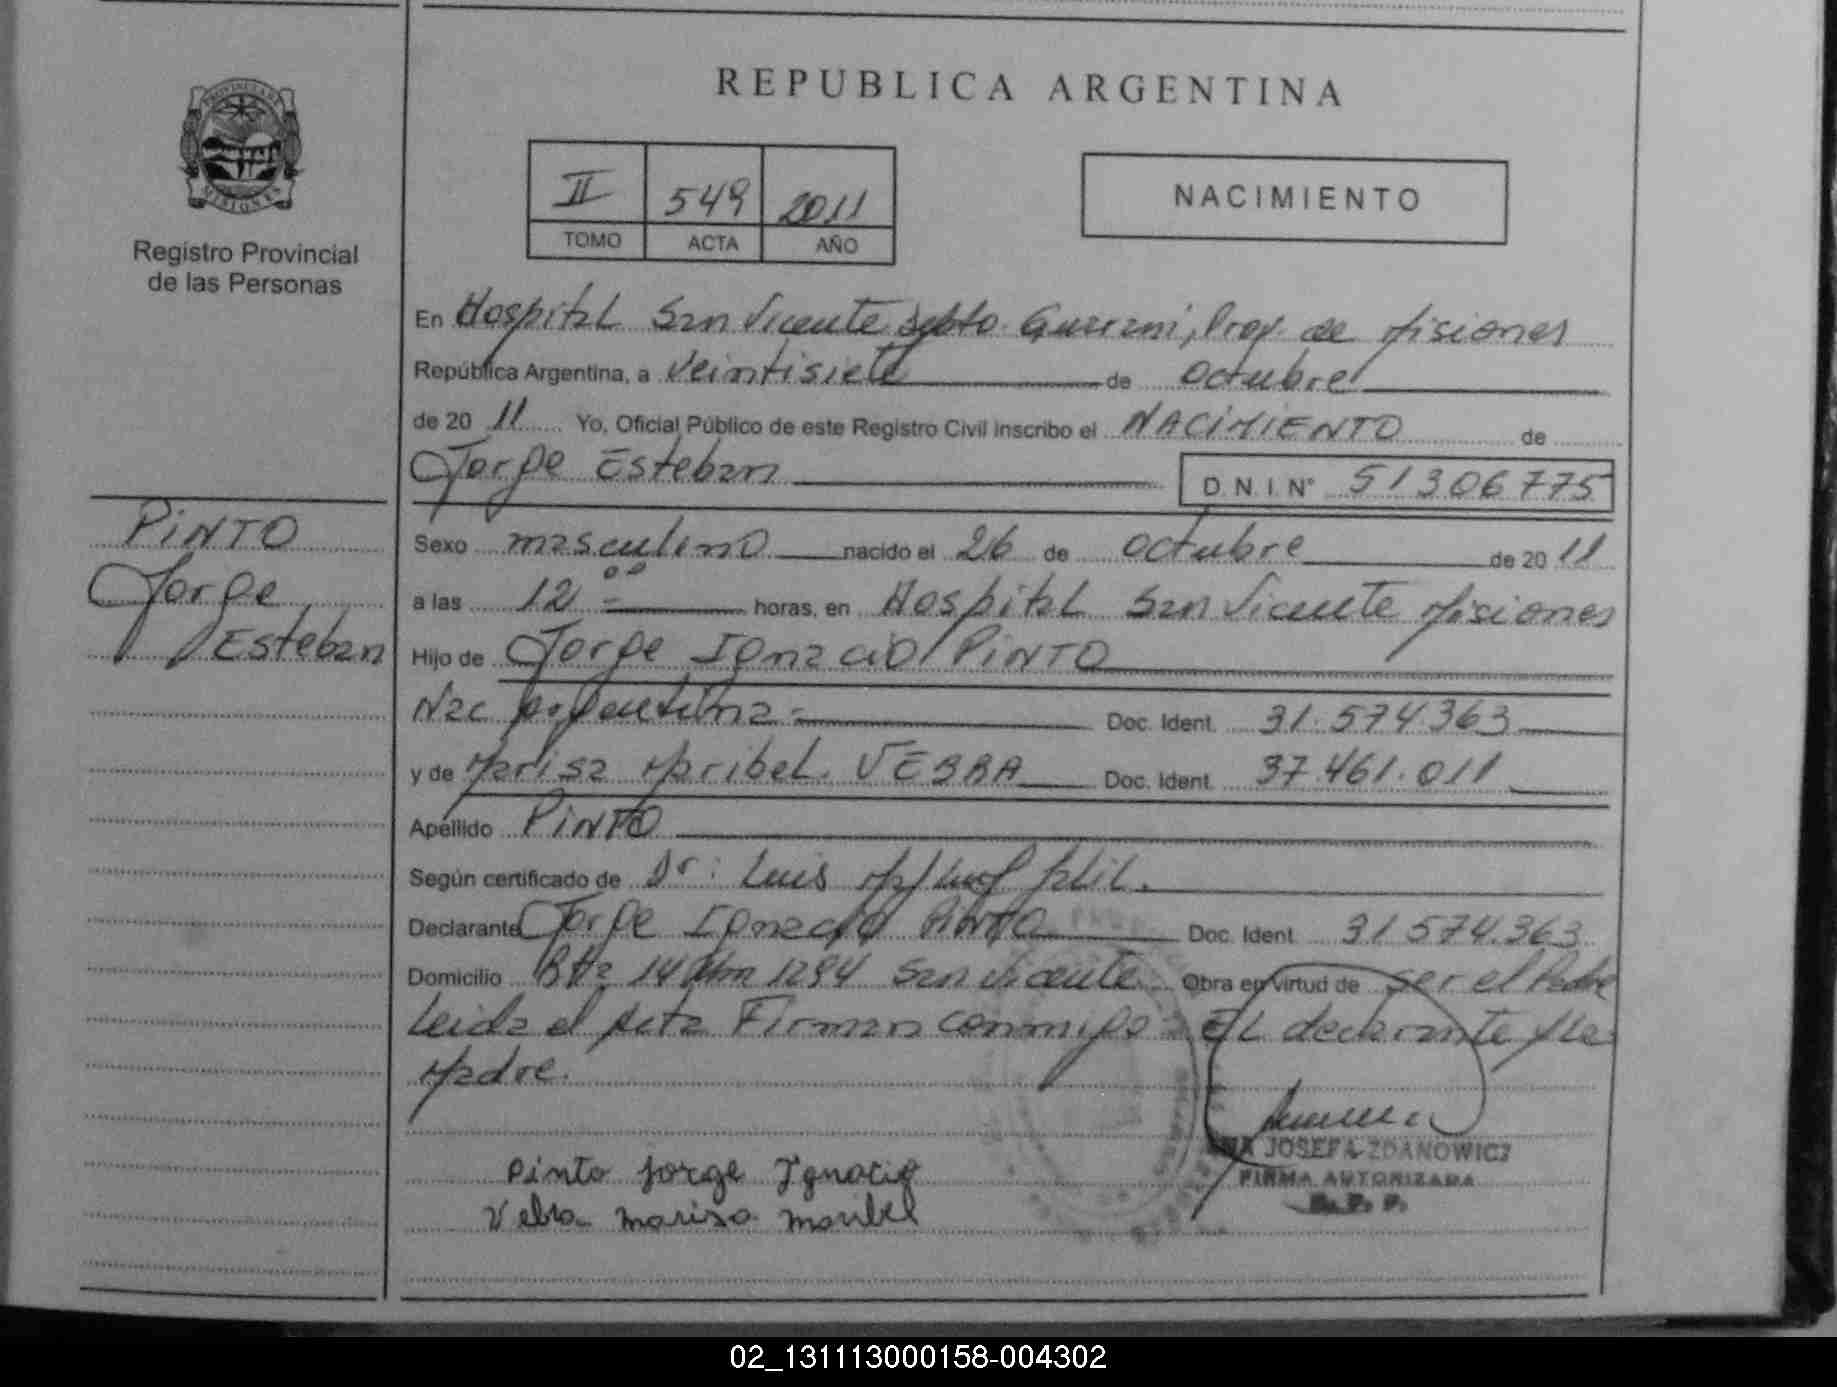 PROVINCIA DE
MISIONES
Registro Provincial
de las Personas
PINTO
Jorge
Esteban
REPUBLICA ARGENTINA
II 549 2011
TOMO ACTA AÑO
NACIMIENTO
En Hospital San Vicente Dpto. Guarani, Prov. de Misiones
República Argentina, a Veintisiete de Octubre
de 20 11 Yo, Oficial Público de este Registro Civil inscribo el NACIMIENTO de
Jorge Esteban D.N.I. N° 51306775
Sexo masculino nacido el 26 de Octubre de 20 11
a las 12 00 horas, en Hospital San Vicente Misiones
Hijo de Jorge Ignacio PINTO
Nac argentina - Doc. Ident. 31.574.363
y de Marisa Maribel. VEBRA Doc. Ident. 37.461.011
Apellido PINTO
Según certificado de Dr: Luis
Declarante Jorge Ignacio PINTO Doc. Ident. 31 574.363
Domicilio Rta 14 Km 1294 San Vicente Obra en virtud de ser el Padre
Leida el Acta Firman conmigo EL declarante y la
Madre.
Pinto Jorge Ignacio
Vebra Marisa Maribel
JOSEFA ZDANOWICZ
FIRMA AUTORIZADA
R. P. P.
02_131113000158-004302